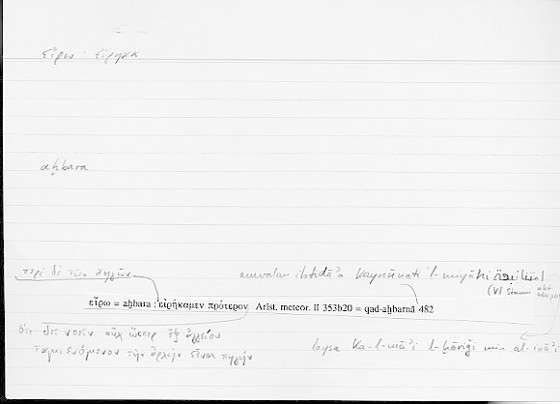 εἴρω : εἴρηκα
aḫbara
περὶ δὲ τῶν πηγῶν
awwalan ibtidāʾa kaynūnati l-miyāhi
(VI Stamm
εἴρω = aḫbara : εἰρήκαμεν πρότερον Arist. meteor. II 353b20 = qad-aḫbarnā 482
ὅτι δεῖ νοεῖν οὐχ ὥσπερ ἐξ ἀγγείου
laysa ka-l-māʾi l-ḫāriǧi min al-ināʾi
ταμιευόμενον τὴν ἀρχὴν εἶναι πηγήν